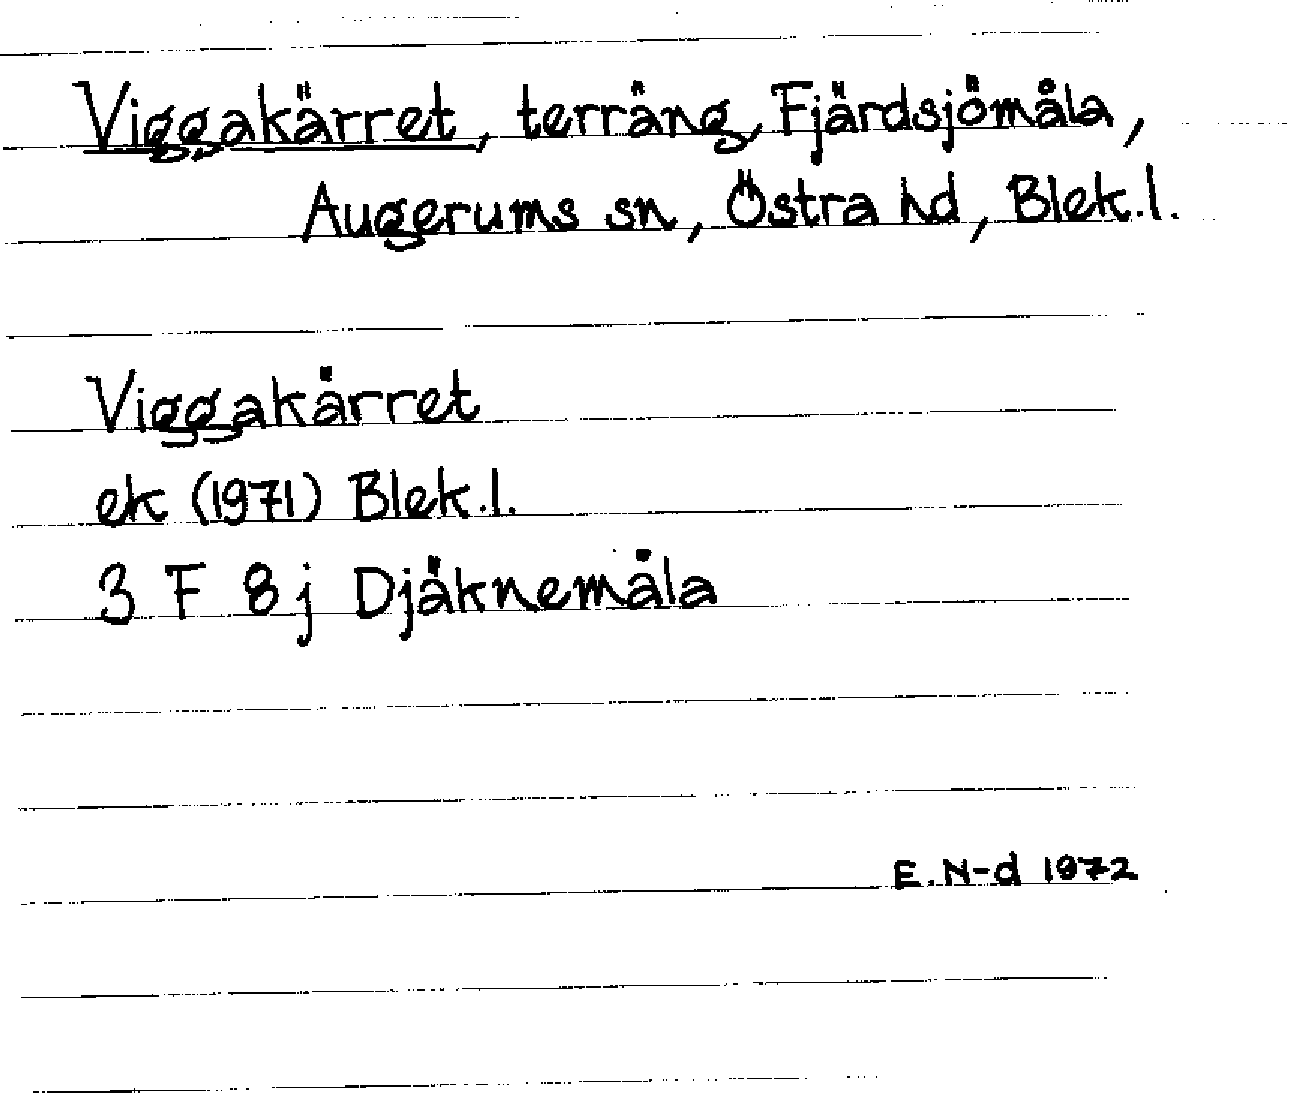 Viggakärret, terräng, Fjärdsjömåla,
Augerums sn, Östra hd, Blek.l.
Viggakärret
ek (1971) Blek.l.
3 F 8 j Djäknemåla
E.N-d 1972